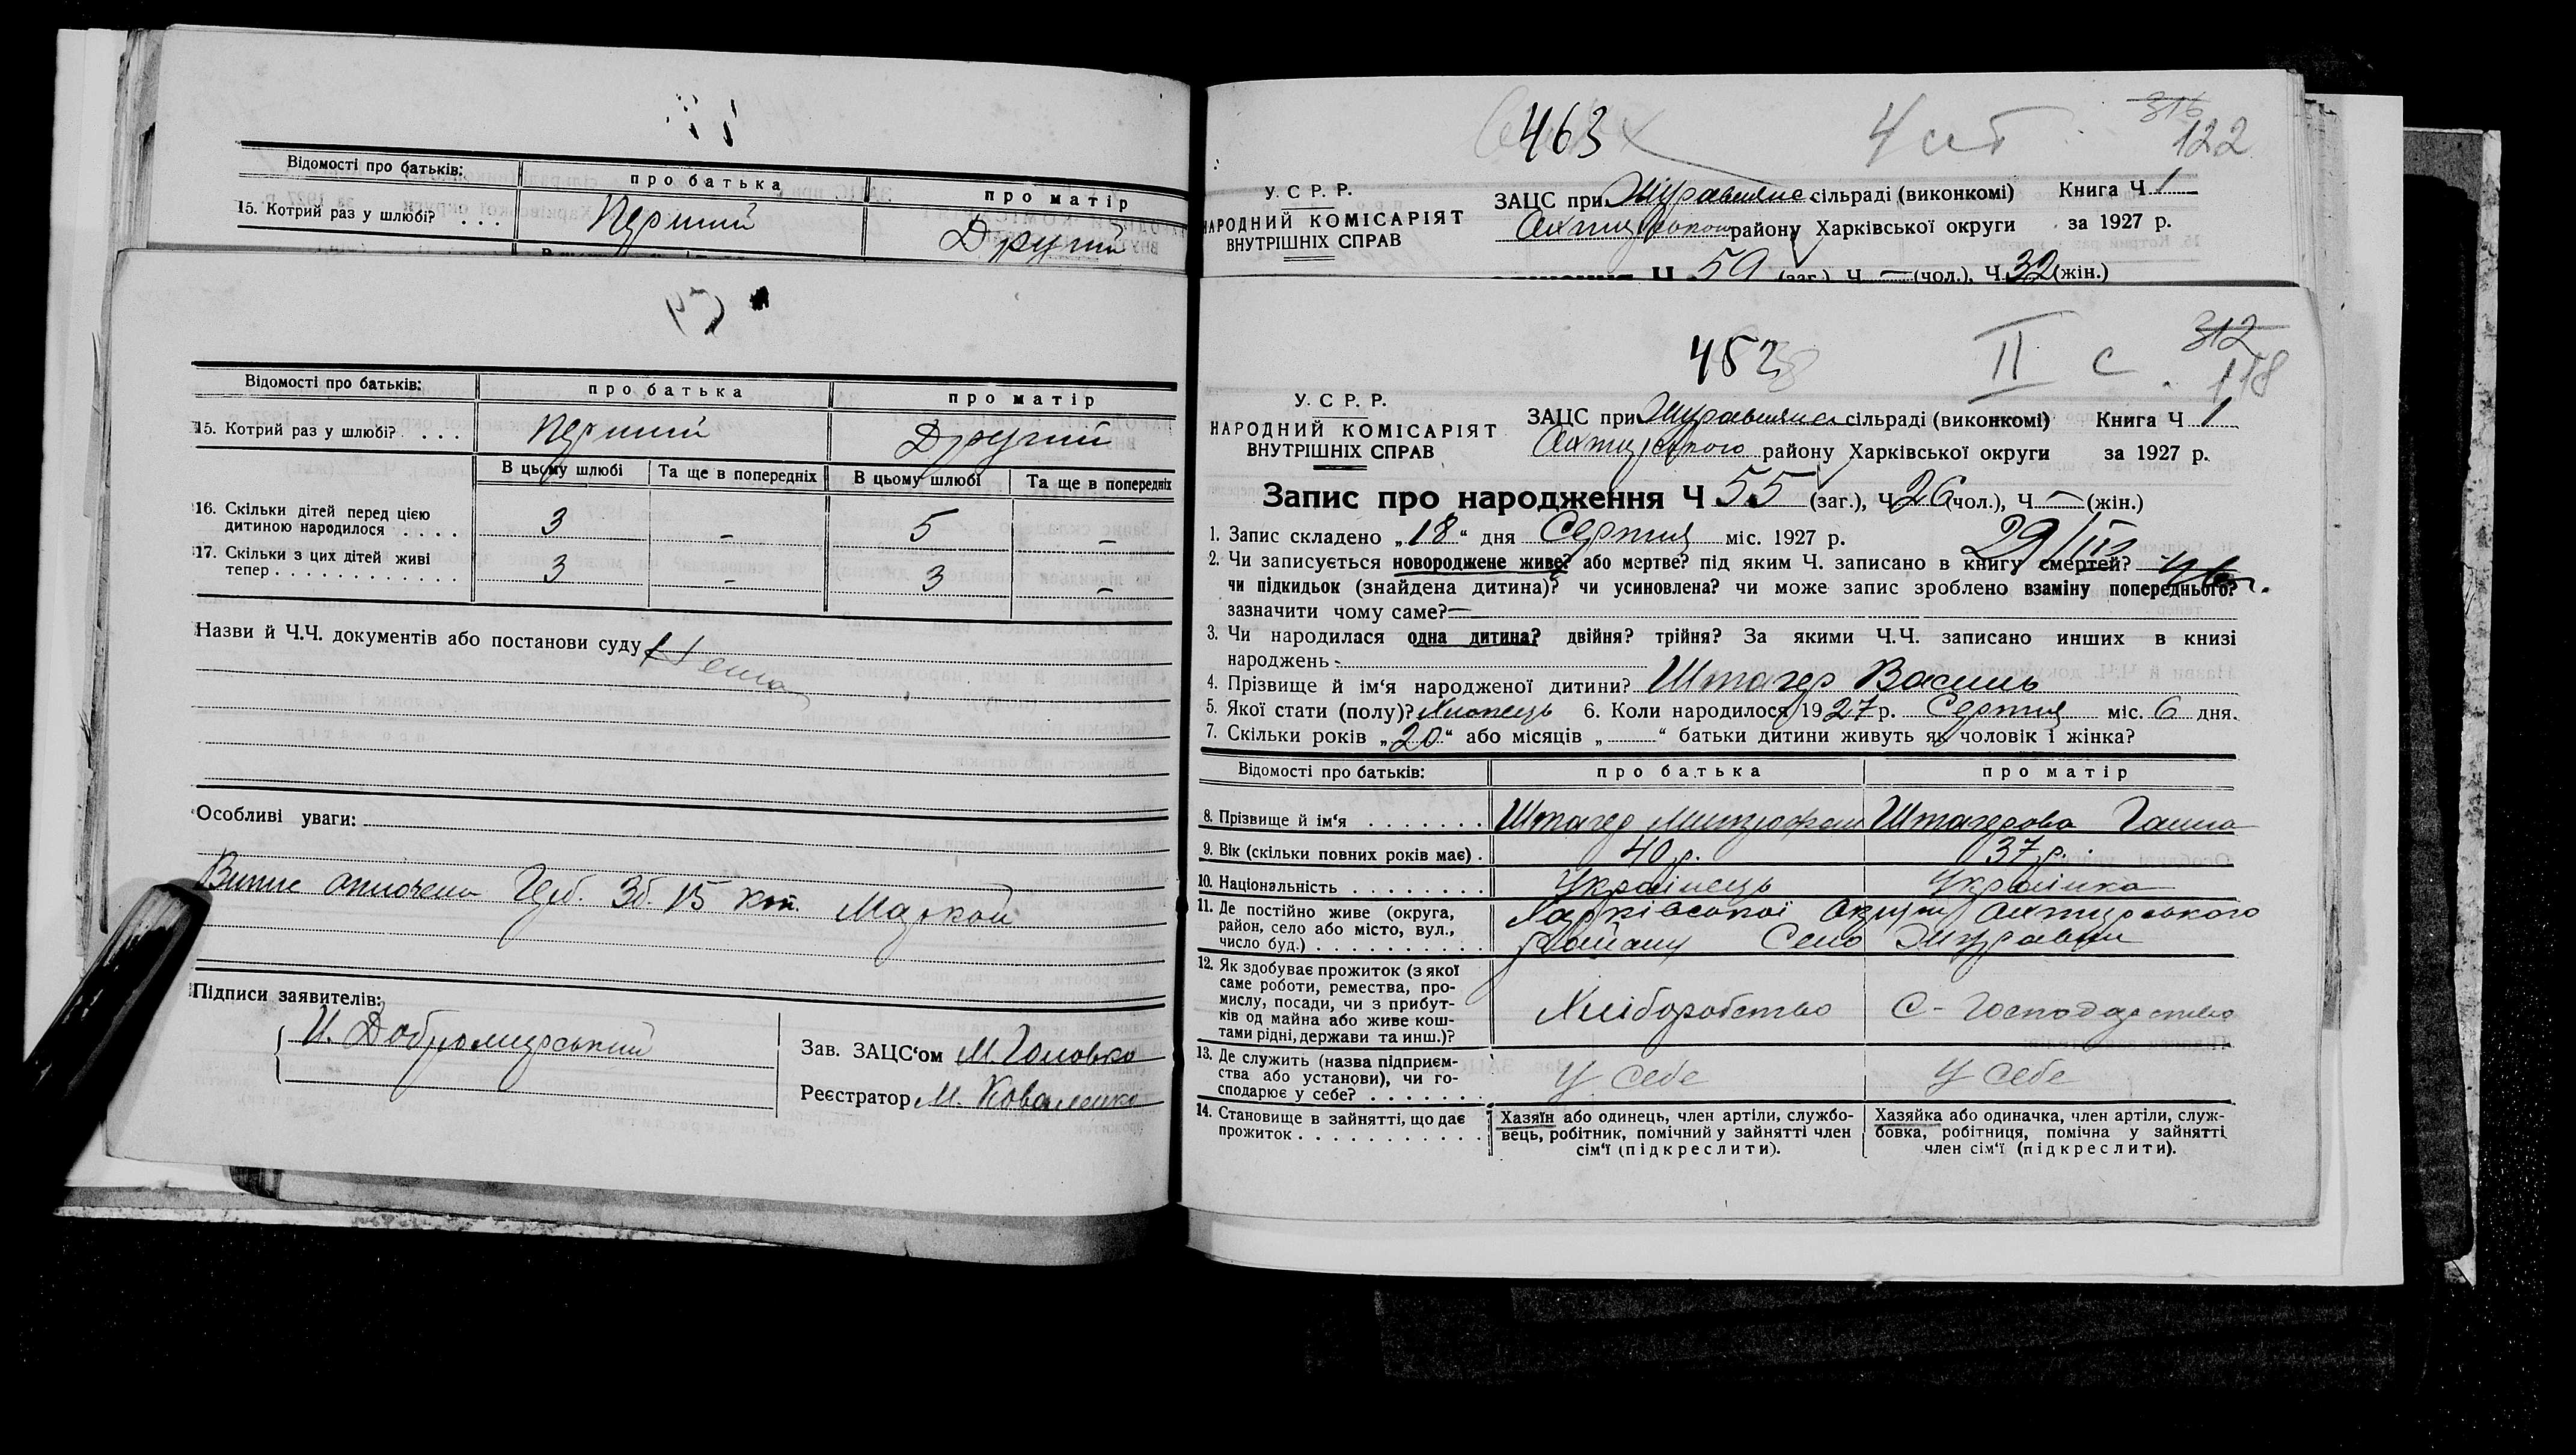 Відомості про батьків: про батька про матір
15. Котрий раз у шлюбі? . . . Перший Другий
Відомості про батьків: про батька про матір
15. Котрий раз у шлюбі? . . . Перший Другий
В цьому шлюбі Та ще в попередніх В цьому шлюбі Та ще в попередніх
16. Скільки дітей перед цією
дитиною народилося . . . . 3 – 5 –
17. Скільки з цих дітей живі
тепер . . . . . . . . . . . . 3 – 3 –
Назви й Ч.Ч. документів або постанови суду Нема
Особливі уваги:
Випис оплочено 3б. 15 коп. Маркой
Підписи заявителів:
И. Добромирський
Зав. ЗАЦС‘ом М. Головко
Реєстратор М. Коваленко
463 316
122
У. С Р. Р. ЗАЦС при Журавляне сільраді (виконкомі) Книга Ч 1
НАРОДНИЙ КОМІСАРІЯТ Ахтирського району Харківської округи за 1927 р.
ВНУТРІШНІХ СПРАВ
59 (заг.), Ч. — (чол.), Ч. 32 (жін.)
452 II с 312
118
У. С Р. Р. ЗАЦС при Журавляне сільраді (виконкомі) Книга Ч 1
НАРОДНИЙ КОМІСАРІЯТ Ахтирського району Харківської округи за 1927 р.
ВНУТРІШНІХ СПРАВ
Запис про народження Ч 55 (заг.), Ч 26 (чол.), Ч — (жін.)
1. Запис складено „18“ дня Серпня міс. 1927 р.
29/III
2. Чи записується новороджене живе? або мертве? під яким Ч. записано в книгу смертей?
чи підкидьок (знайдена дитина)? чи усиновлена? чи може запис зроблено взаміну попереднього?
зазначити чому саме? —
3. Чи народилася одна дитина? двійня? трійня? За якими Ч.Ч. записано инших в книзі
народжень -
4. Прізвище й ім‘я народженої дитини? Штагер Василь
5. Якої стати (полу)? Хлопець 6. Коли народилося 1927 р. Серпня міс. 6 дня.
7. Скільки років „20“ або місяців „—“ батьки дитини живуть як чоловік і жінка?
Відомості про батьків: про батька про матір
8. Прізвище й ім‘я . . . . . . . Штагер Митрофан Штагерова Ганна
9. Вік (скільки повних років має) . 40 р. 37 р.
10. Національність . . . . . . . . Українець Українка
11. Де постійно живе (округа,
район, село або місто, вул.,
число буд.) . . . . . . . . . . Харківської Округи Ахтирського
Району Село Журавни
12. Як здобуває прожиток (з якої
саме роботи, ремества, про-
мислу, посади, чи з прибут-
ків од майна або живе кош-
тами рідні, держави та инш.)? Хліборобство С-Господарство
13. Де служить (назва підприєм-
ства або установи), чи го-
сподарює у себе? . . . . . . . У себе У себе
14. Становище в зайнятті, що дає
прожиток . . . . . . . . . . . .
Хазяїн або одинець, член артіли, службо-
вець, робітник, помічний у зайнятті член
сім‘ї (підкреслити).
Хазяйка або одиначка, член артіли, служ-
бовка, робітниця, помічна у зайнятті
член сім‘ї (підкреслити).